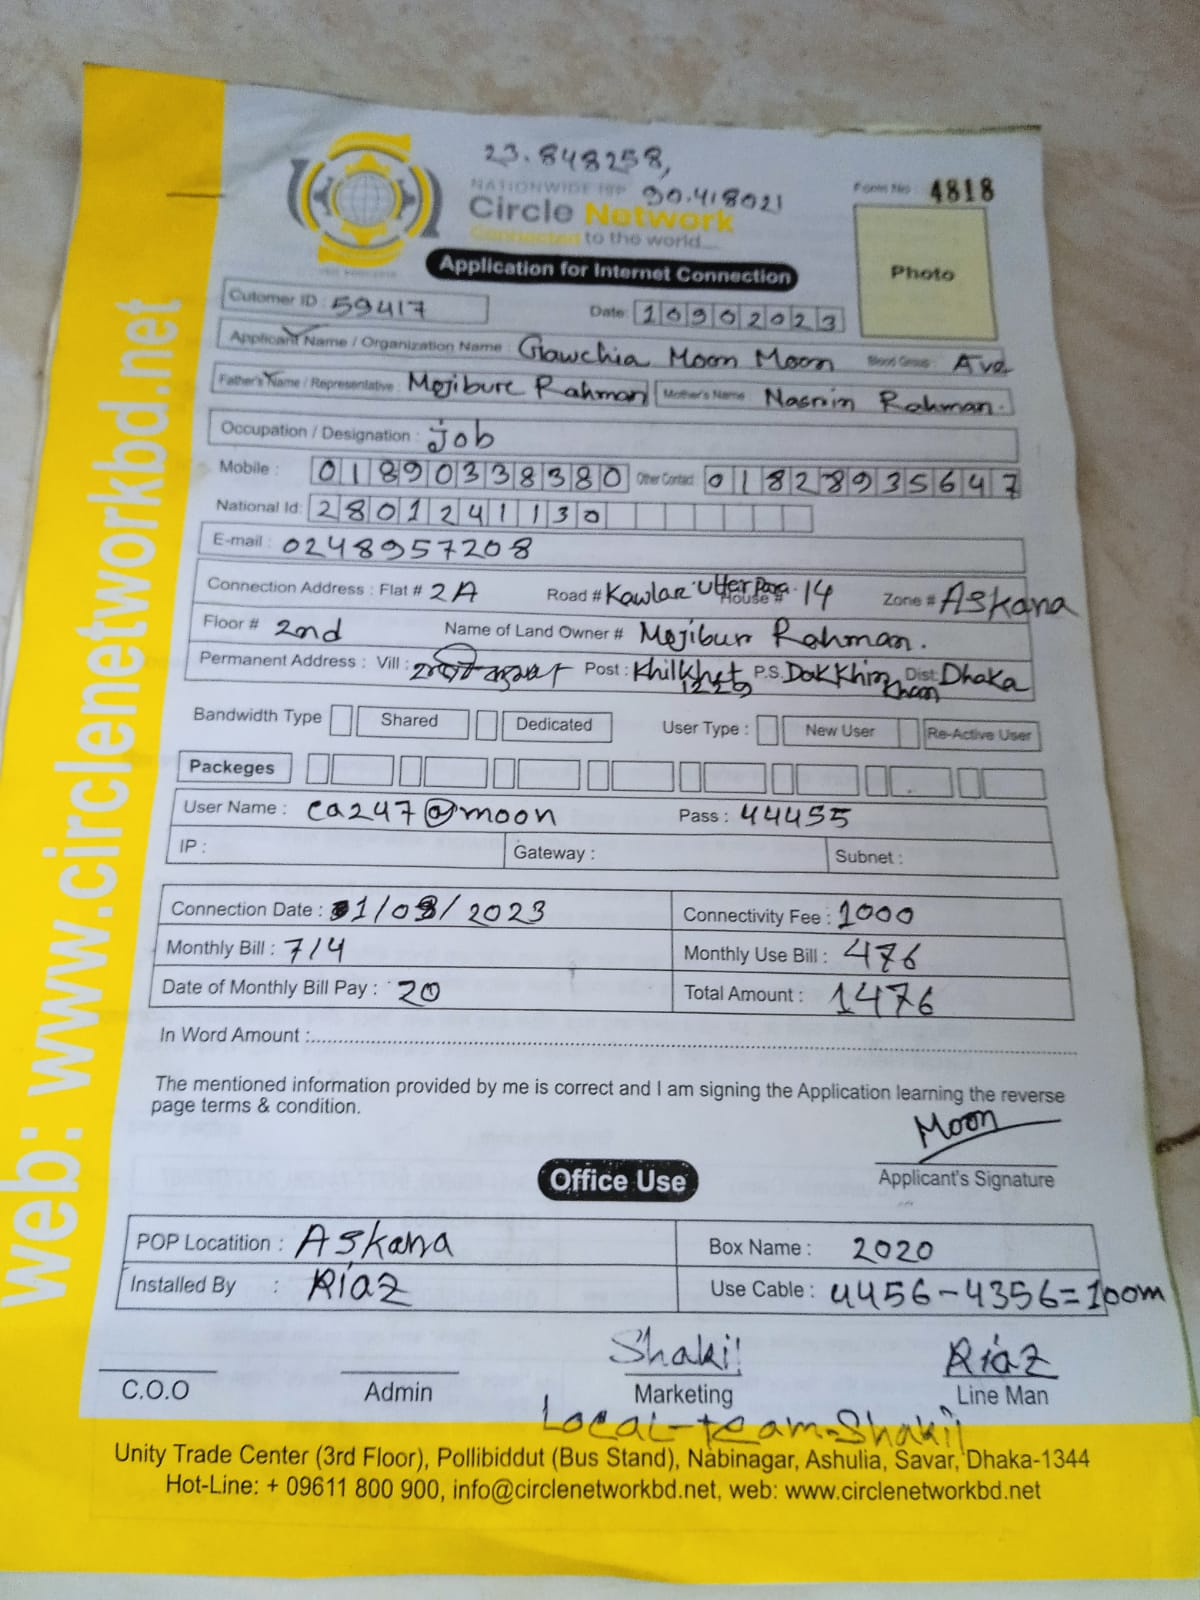 23.848258,
NATIONWIDE ISP 90.418021
Form No : 4818
Circle Network
Connected to the world....
Photo
Application for Internet Connection
Cutomer ID : 59417
Date: 10902023
Applicant Name / Organization Name : Gawchia Moon Moon Blood Group: A ve
Father's Name / Representative : Mojibure Rahman Mother's Name Nasrin Rahman.
Occupation / Designation : job
Mobile : 01890338380 Other Contact 01828935647
National Id: 2801241130
E-mail : 0248957208
Connection Address : Flat # 2A Road # Kawlar Utter Para House # 14 Zone # Askana
Floor # 2nd Name of Land Owner # Mojibur Rahman.
Permanent Address : Vill : Post : Khilkhet P.S. Dakkhin Khan Dist: Dhaka
Bandwidth Type Shared Dedicated User Type : New User Re-Active User
Packeges
User Name : ca247@moon Pass : 44455
IP : Gateway : Subnet :
Connection Date : 01/09/2023 Connectivity Fee : 1000
Monthly Bill : 714 Monthly Use Bill : 476
Date of Monthly Bill Pay : 20 Total Amount : 1476
In Word Amount :
The mentioned information provided by me is correct and I am signing the Application learning the reverse
page terms & condition.
Moon
Applicant's Signature
Office Use
POP Locatition : Askana Box Name : 2020
Installed By : Riaz Use Cable : 4456-4356=100m
Shakil Riaz
C.O.O Admin Marketing Line Man
Local-team-Shakil
Unity Trade Center (3rd Floor), Pollibiddut (Bus Stand), Nabinagar, Ashulia, Savar, Dhaka-1344
Hot-Line: + 09611 800 900, info@circlenetworkbd.net, web: www.circlenetworkbd.net
web: www.circlenetworkbd.net